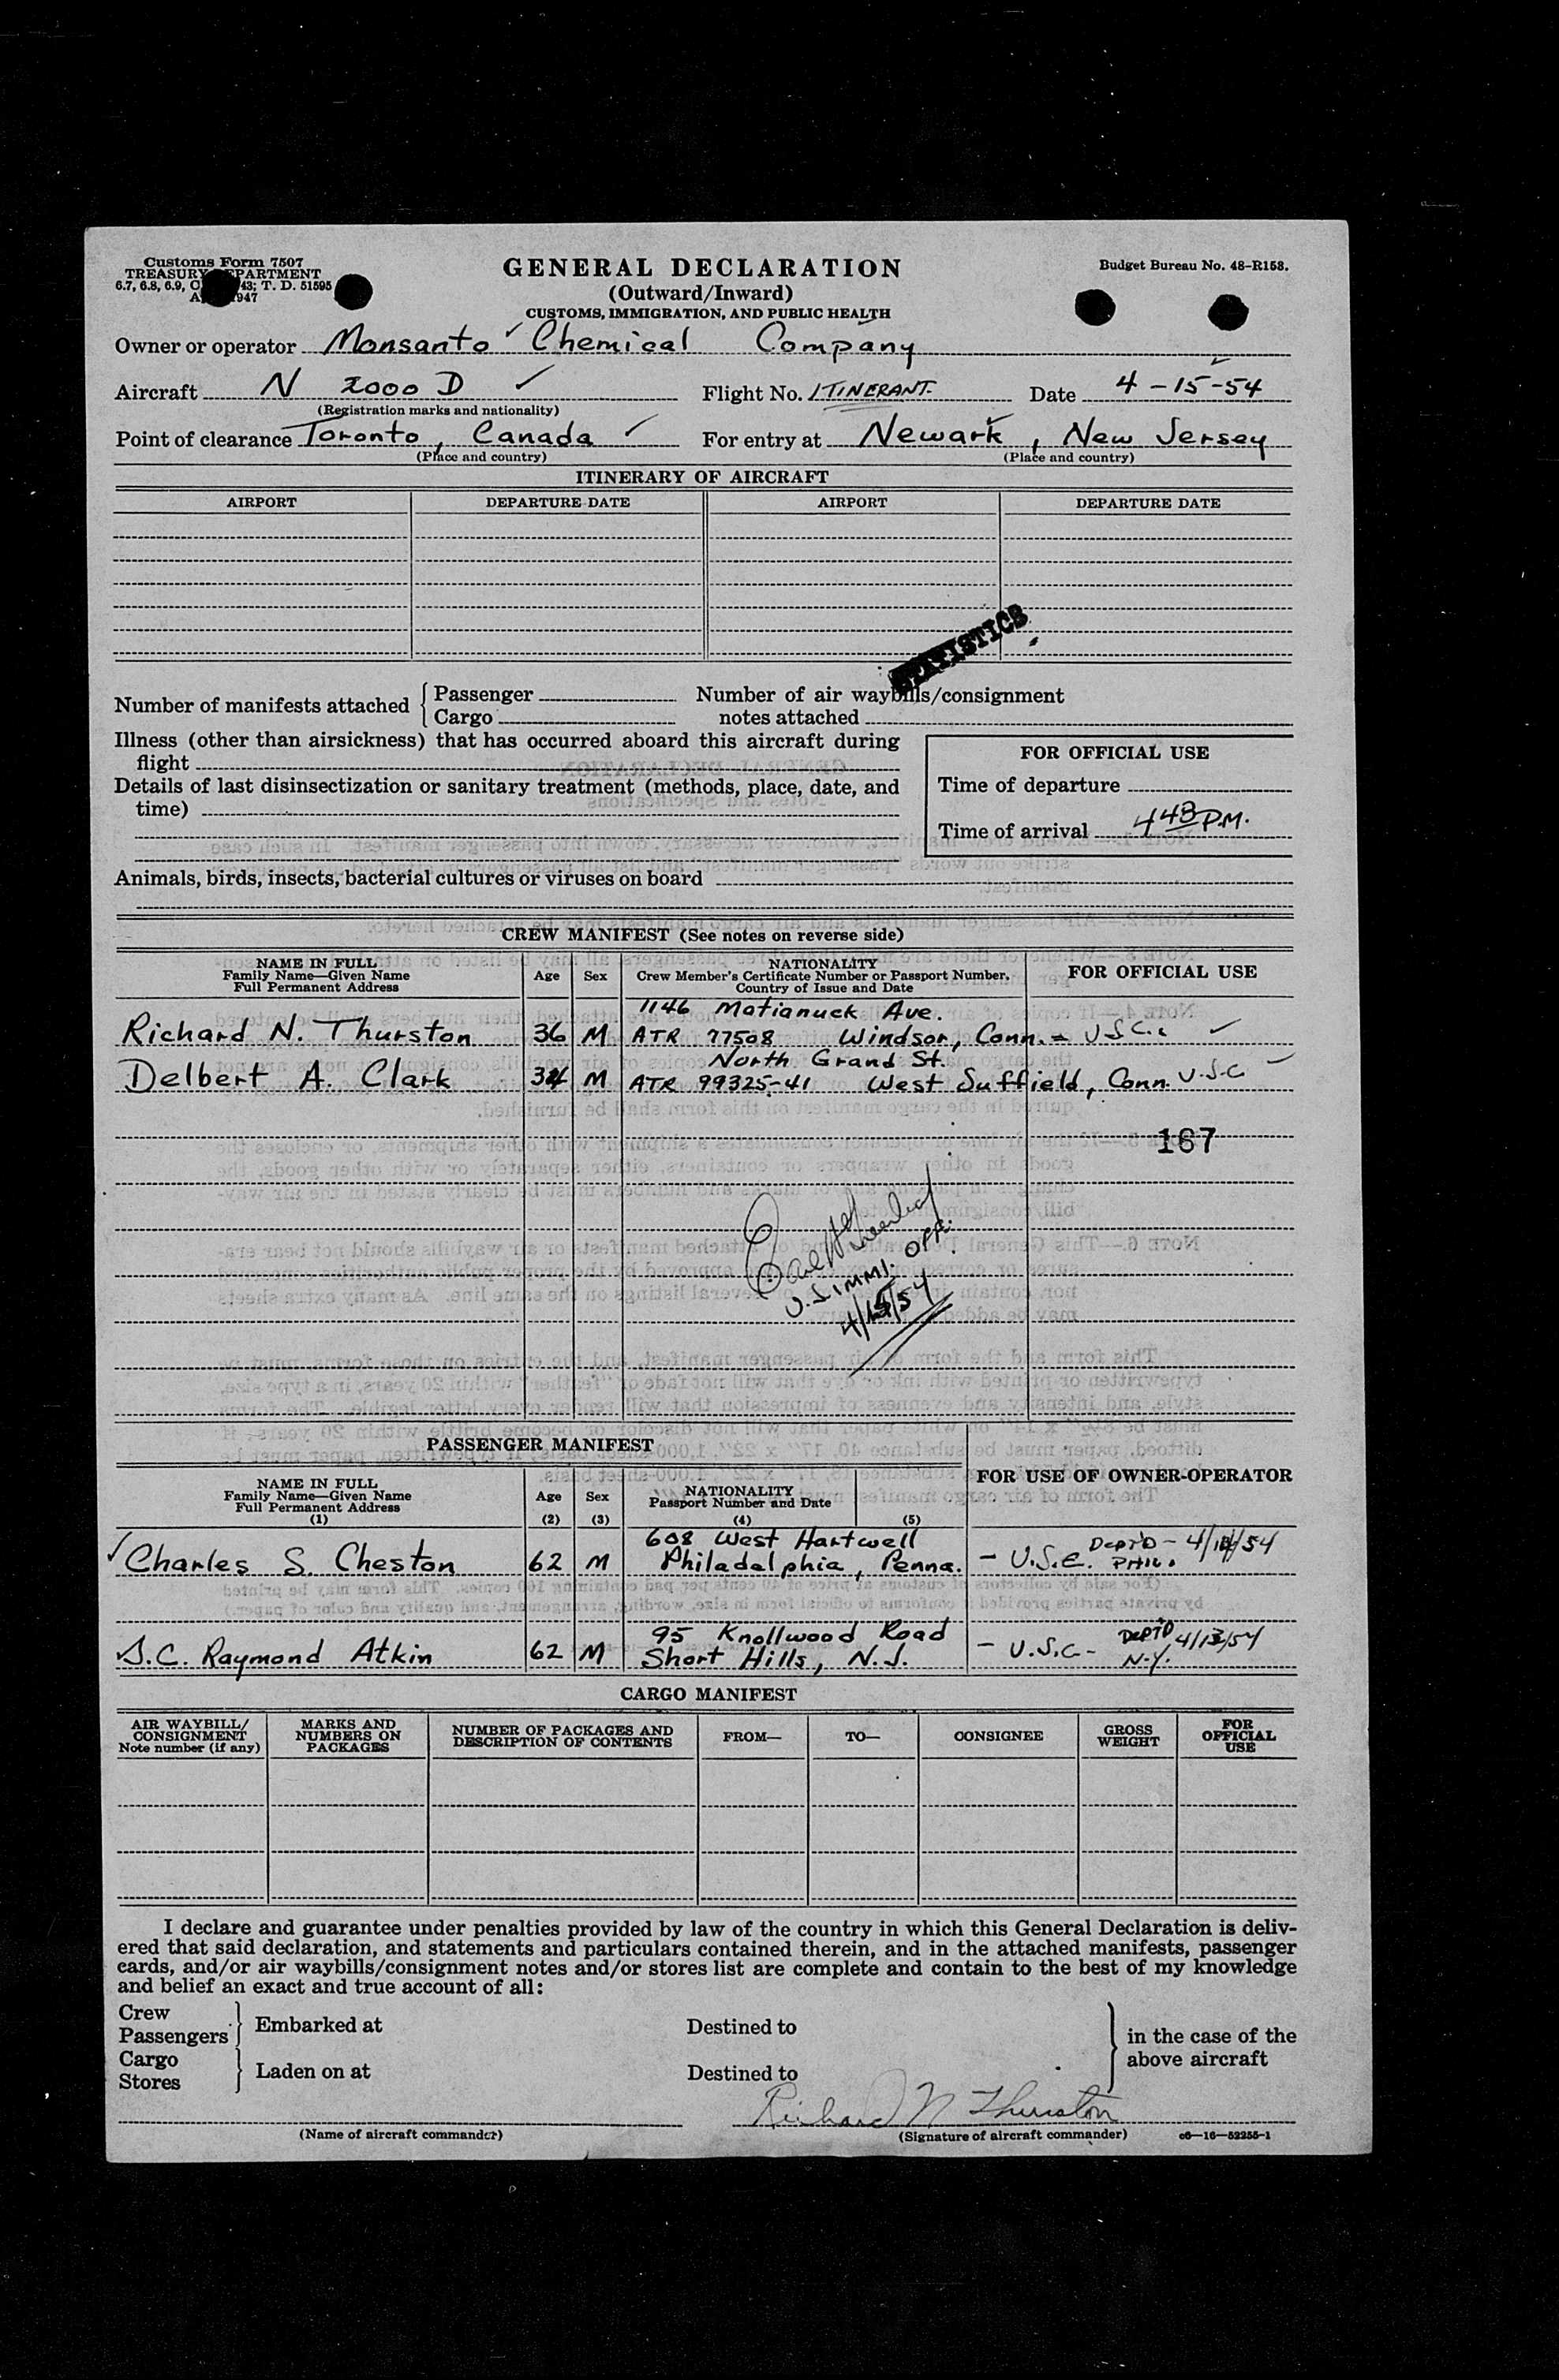 Customs Form 7507
TREASURY DEPARTMENT
6.7, 6.8, 6.9, 43; T. D. 51595
1947
GENERAL DECLARATION
(Outward/Inward)
CUSTOMS, IMMIGRATION, AND PUBLIC HEALTH
Budget Bureau No. 48-R158.
Owner or operator Monsanto Chemical Company
Aircraft N 2000 D Flight No. ITINERANT. Date 4-15-54
(Registration marks and nationality)
Point of clearance Toronto, Canada For entry at Newark, New Jersey
(Place and country) (Place and country)
ITINERARY OF AIRCRAFT
AIRPORT DEPARTURE DATE AIRPORT DEPARTURE DATE
STATISTICS
Number of manifests attached { Passenger Number of air waybills/consignment
Cargo notes attached
Illness (other than airsickness) that has occurred aboard this aircraft during
flight
Details of last disinsectization or sanitary treatment (methods, place, date, and
time)
FOR OFFICIAL USE
Time of departure
Time of arrival 448 P.M.
Animals, birds, insects, bacterial cultures or viruses on board
CREW MANIFEST (See notes on reverse side)
NAME IN FULL
Family Name—Given Name
Full Permanent Address
Age Sex
NATIONALITY
Crew Member's Certificate Number or Passport Number,
Country of Issue and Date
FOR OFFICIAL USE
1146 Matianuck Ave.
Richard N. Thurston 36 M ATR 77508 Windsor, Conn. - U.S.C.
North Grand St.
Delbert A. Clark 34 M ATR 99325-41 West Suffield, Conn. U.S.C
167
U.S. IMMI. OFF.
4/15/54
PASSENGER MANIFEST
NAME IN FULL
Family Name—Given Name
Full Permanent Address
(1)
Age
(2)
Sex
(3)
NATIONALITY
Passport Number and Date
(4) (5)
FOR USE OF OWNER-OPERATOR
608 West Hartwell
Charles S. Cheston 62 M Philadelphia, Penna. - U.S.C. DEPT'D - 4/54
PHIL.
95 Knollwood Road
J.C. Raymond Atkin 62 M Short Hills, N.J. - U.S.C- DEPT'D 4/13/54
N.Y.
CARGO MANIFEST
AIR WAYBILL/
CONSIGNMENT
Note number (if any)
MARKS AND
NUMBERS ON
PACKAGES
NUMBER OF PACKAGES AND
DESCRIPTION OF CONTENTS
FROM— TO— CONSIGNEE
GROSS
WEIGHT
FOR
OFFICIAL
USE
I declare and guarantee under penalties provided by law of the country in which this General Declaration is deliv-
ered that said declaration, and statements and particulars contained therein, and in the attached manifests, passenger
cards, and/or air waybills/consignment notes and/or stores list are complete and contain to the best of my knowledge
and belief an exact and true account of all:
Crew
Passengers } Embarked at Destined to
Cargo
Stores } Laden on at Destined to
in the case of the
above aircraft
Richard N Thurston
(Name of aircraft commander) (Signature of aircraft commander) c6—16—52255-1